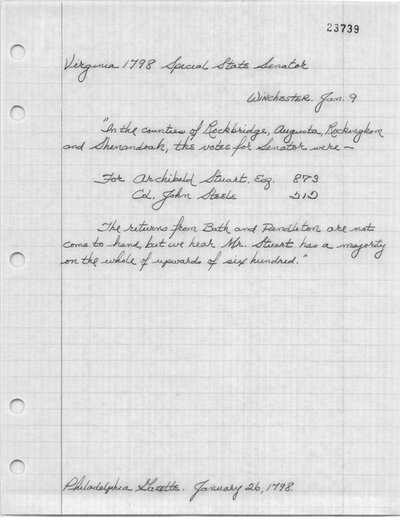 23739
Virginia 1798 Special State Senator
Winchester, Jan. 9
"In the counties of Rockbridge, Augusta, Rockingham
and Shenandoah, the votes for Senator were —
For Archibald Stuart, Esq. 873
Col. John Steele 212
The returns from Bath and Pendleton are not
come to hand, but we hear Mr. Stuart has a majority
on the whole of upwards of six hundred."
Philadelphia Gazette. January 26, 1798.